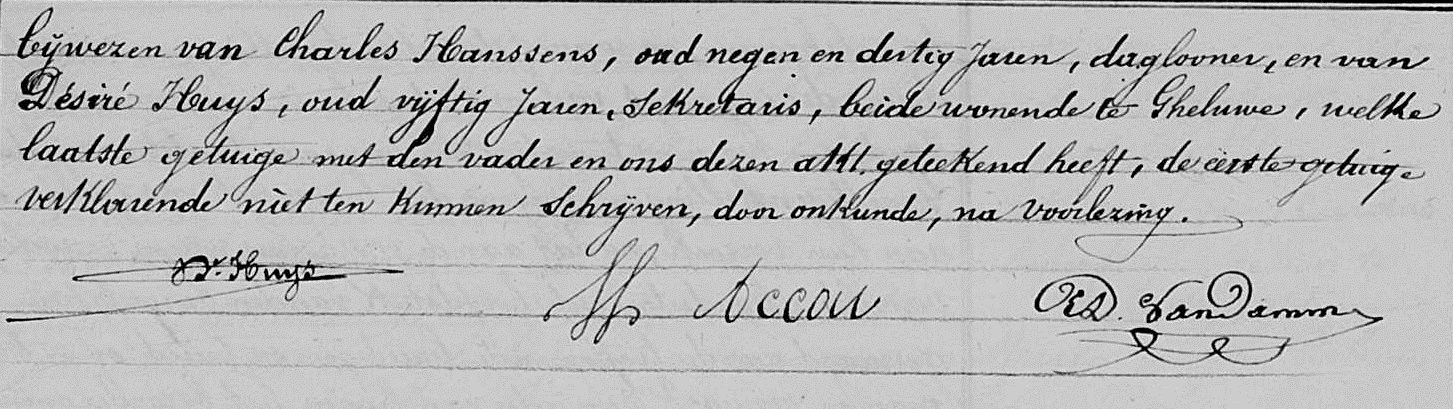 bijwezen van Charles Hanssens, oud negen en dertig Jaren, daglooner, en van
Désiré Huys, oud vijftig Jaren, Sekretaris, beide wonende te Gheluwe, welke
laatste getuige met den vader en ons dezen akt. geteekend heeft, de eerste getuige
verklarende niet ten kunnen Schrijven, door onkunde, na voorlezing.
Dr. Huys Accou ED. VanDamme